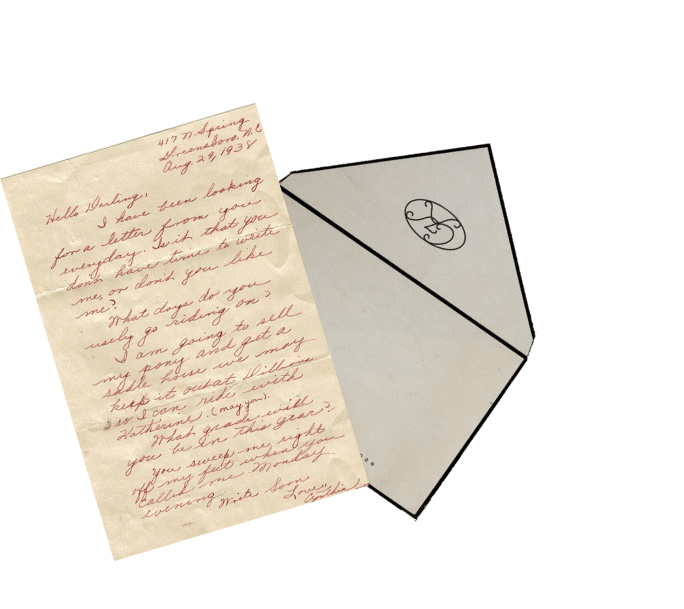 417 N Spring
Greensboro, N.C
Aug. 29, 1938
Hello Darling,
I have been looking
for a letter from you
everyday. Is it that you
don't have time to write
me, or don't you like
me?
What days do you
usely go riding on?
I am going to sell
my pony and get a
sadle horse we may
keep it out at
so I can ride with
Katherine. (may you).
What grade will
you be in this year?
You sweep me right
off my feet when you
called me Monday
evening Write Soon
Love,
Cynthia